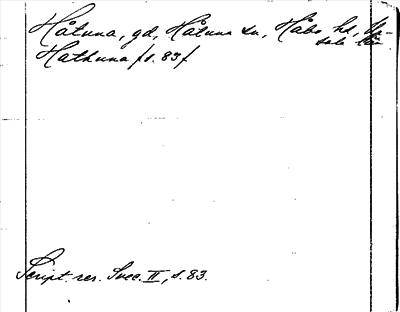 Håtuna, gd, Håtuna sn, Håbo hd, Upp-
sala län
Hathuna /s. 83/
Script. rer. Svec. II, s. 83.